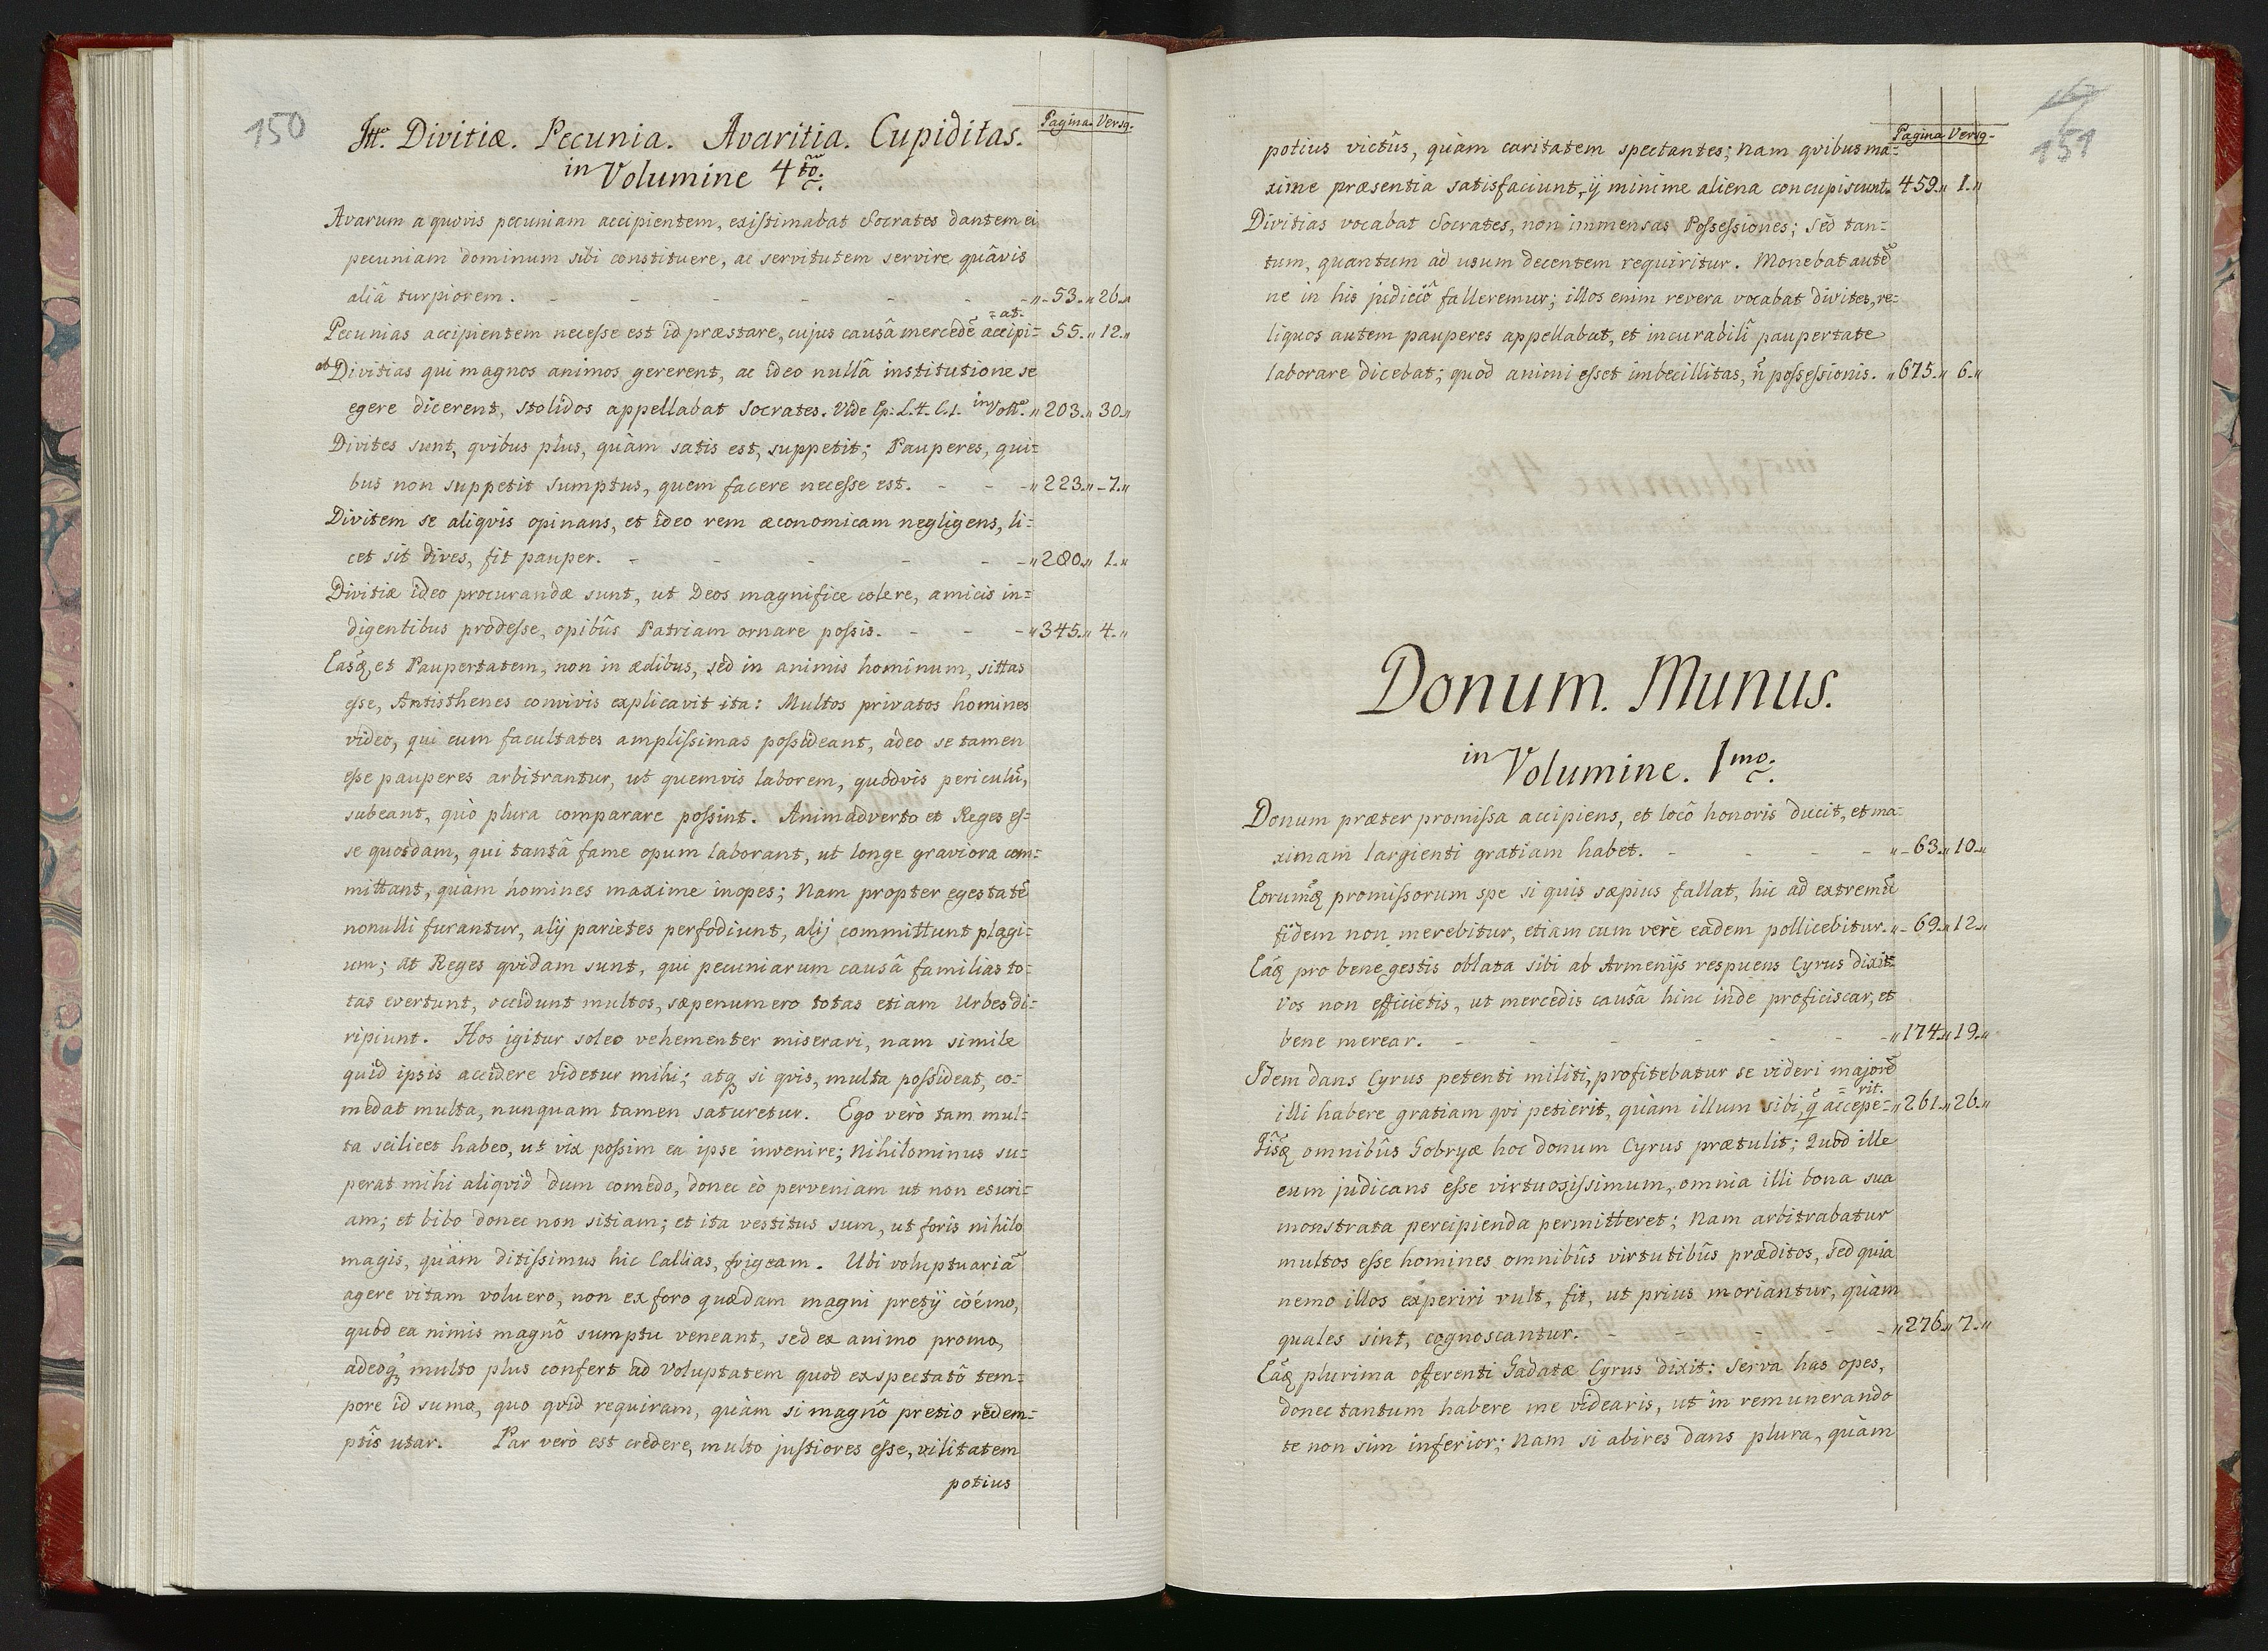 150
Itto. Divitiæ. Pecunia. Avaritia. Cupiditas.
Pagina. Versq.
in Volumine 4to.
Avarum a quovis pecuniam accipientem, existimabat Socrates dantem ei
pecuniam dominum sibi constituere, ac servitutem servire quâvis
aliâ turpiorem. - - - - - - -„-53.„ 26.„
Pecunias accipientem necesse est id præstare, cujus causâ mercedē accipi=at. 55.„ 12.„
at Divitias qui magnos animos gererent, ac ideo nullâ institutione se
egere dicerent, stolidos appellabat Socrates. Vide Ep: L.4. C.1. in Voll. „203.„ 30.„
Divites sunt, qvibus plus, quàm satis est, suppetit; Pauperes, qui=
bus non suppetit sumptus, quem facere necesse est. - - -„223.„-7.„
Divitem se aliqvis opinans, et ideo rem œconomicam negligens, li=
cet sit dives, fit pauper. - - - - -„280.„ 1.„
Divitiæ ideo procurandæ sunt, ut Deos magnifice colere, amicis in=
digentibus prodesse, opibûs Patriam ornare possis. - - -„345.„ 4.„
Easq, et Paupertatem, non in ædibus, sed in animis hominum, sittas
esse, Antisthenes convivis explicavit ita: Multos privatos homines
video, qui cum facultates amplissimas possideant, adeo se tamen
esse pauperes arbitrantur, ut quemvis laborem, quodvis periculū,
subeant, quò plura comparare possint. Animadverto et Reges es=
se quosdam, qui tantâ fame opum laborant, ut longe graviora com=
mittant, quàm homines maxime inopes; Nam propter egestatē
nonulli furantur, alij parietes perfodiunt, alij committunt plagi=
um; at Reges qvidam sunt, qui pecuniarum causâ familias to=
tas evertunt, occidunt multos, sæpenumero totas etiam Urbes di=
ripiunt. Hos igitur soleo vehementer miserari, nam simile
quid ipsis accidere videtur mihi; atq, si qvis, multa possideat, co=
medat multa, nunquam tamen saturetur. Ego verò tam mul=
ta scilicet habeo, ut vix possim ea ipse invenire; Nihilominus su=
perat mihi aliqvid dum comedo, donec eò perveniam ut non esuri=
am; et bibo donec non sitiam; et ita vestitus sum, ut foris nihilo
magis, quàm ditissimus hic Callias, frigeam. Ubi voluptuariā
agere vitam voluero, non ex foro quædam magni pretij coëmo,
quod ea nimis magnô sumptu veneant, sed ex animo promo,
adeoq, multo plus confert ad voluptatem quod exspectatô tem=
pore id sumo, quo qvid requiram, quàm si magnô pretio redem=
ptîs utar. Par verò est credere, multo justiores esse, vilitatem
potius
151
Pagina Versq.
potius victûs, quàm caritatem spectantes; Nam qvibus ma=
xime præsentia satisfaciunt, ij minime aliena concupiscunt. 459.„ 1.„
Divitias vocabat Socrates, non immensas Possessiones; sed tan=
tum, quantum ad usum decentem requiritur. Monebat autē
ne in his judiciô falleremur; illos enim revera vocabat divites, re=
liquos autem pauperes appellabat, et incurabilî paupertate
laborare dicebat; quod animi esset imbecillitas, n̄ possessionis. „675.„ 6.„
Donum. Munus.
in Volumine. 1mo.
Donum præter promissa accipiens, et locô honoris ducit, et ma=
ximam largienti gratiam habet. - - - - „-63.„ 10.„
Eorumq promissorum spe si quis sæpius fallat, hic ad extremū
fidem non merebitur, etiam cum verè eadem pollicebitur. „- 69.„ 12.„
Eaq pro bene gestis oblata sibi ab Armenijs respuens Cyrus dixit:
Vos non efficietis, ut mercedis causâ hinc inde proficiscar, et
bene merear. - - - - - -„174.„ 19.„
Idem dans Cyrus petenti militi, profitebatur se videri majorē
illi habere gratiam qvi petierit, quàm illum sibi, q̄ accepe=rit. „261.„ 26.„
Hisq omnibûs Gobryæ hoc donum Cyrus prætulit; Quod ille
eum judicans esse virtuosissimum, omnia illi bona sua
monstrata percipienda permitteret; Nam arbitrabatur
multos esse homines omnibûs virtutibûs præditos, sed quia
nemo illos experiri vult, fit, ut prius moriantur, quàm
quales sint, cognoscantur. - - - - -„276.„ 7.„
Eaq plurima offerenti Gadatæ Cyrus dixit: Serva has opes,
donec tantum habere me videaris, ut in remunerando
te non sim inferior; Nam si abires dans plura, quàm